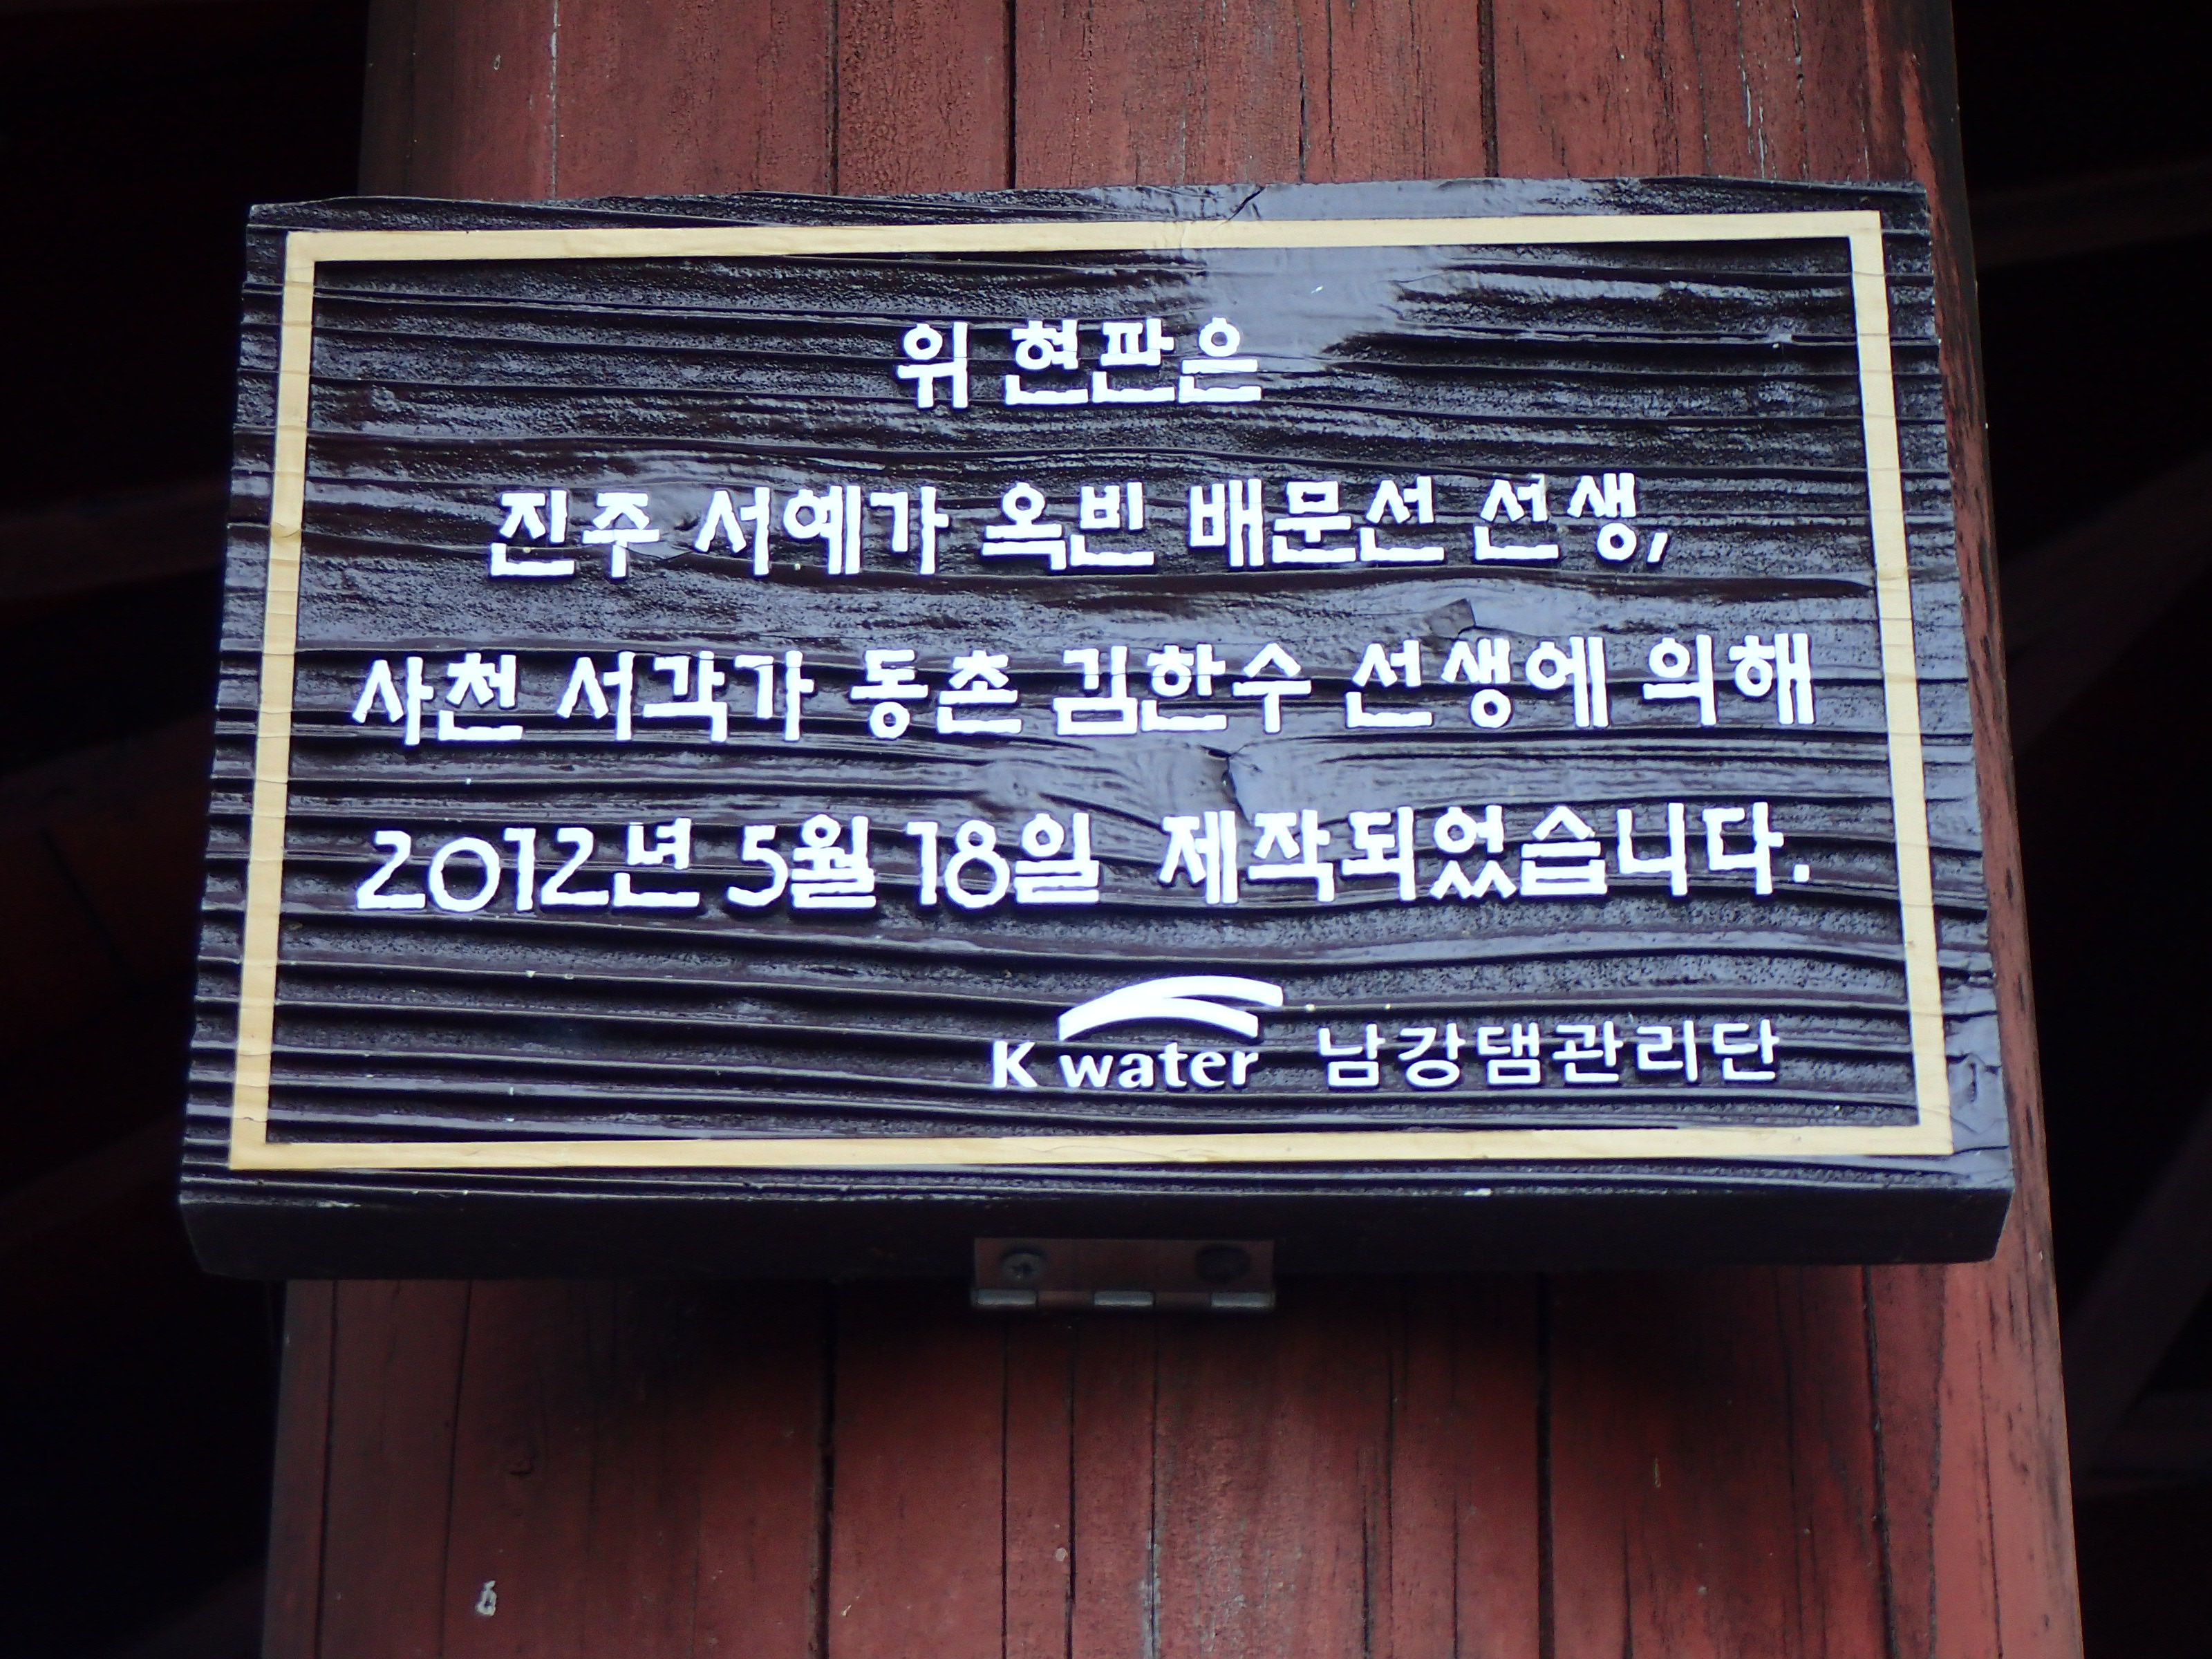 위 현판은
진주 서예가 옥빈 배문선 선생,
사천 서각가 동촌 김한수 선생에 의해
2012년 5월 18일 제작되었습니다.
K water 남강댐관리단